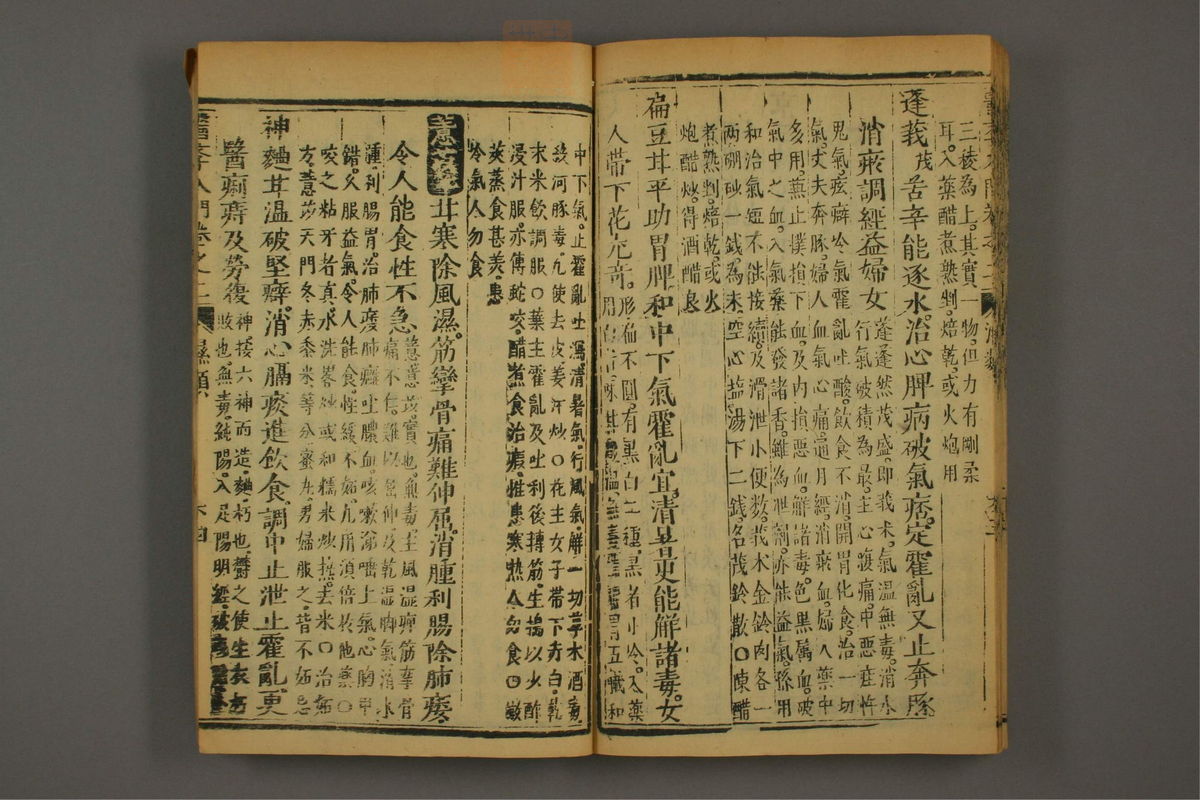 三稜為上其實一物但力有剛柔
耳入藥醋煮熟剉焙乾或火炮用
蓬莪茂苦辛能逐水治心脾病破氣痞定霍亂又止奔豚
消瘀調經益婦女
蓬蓬然茂盛即莪朮氣溫無毒消水
行氣破積為最主心腹痛中惡疰忤
鬼氣痃癖冷氣霍亂吐酸飲食不消開胃化食治一切
氣丈夫奔豚婦人血氣心痛通月經消瘀血婦人藥中
多用兼止撲損下血及內損惡血解諸毒色黑屬血破
氣中之血入氣藥能發諸香雖為泄劑亦能益氣孫用
和治氣短不能接續及滑泄小便數莪朮金鈴肉各一
兩硼砂一錢為末空心鹽湯下二錢名茂鈴散○陳醋
煮熟剉焙乾或火
炮醋炒得酒醋良
扁豆甘平助胃脾和中下氣霍亂宜清暑更能解諸毒女
人帶下花尤奇
形扁不圓有黑白二種黑者小冷入藥
用白行氣毒胃五臟和
中下氣止霍亂吐瀉清暑氣行風氣解一切草木酒毒
殺河豚毒凡使去皮姜汁炒○花主女子帶下赤白乾
末米飲調服○葉主霍亂及吐利後轉筋生搗以少酢
浸汁服亦傅蛇咬醋煮食治瘕惟患寒熱人勿食○嫩
莢蒸食甚美患
冷氣人勿食
薏苡甘寒除風濕筋攣骨痛難伸屈消腫利腸除肺痿
令人能食性不急
薏薏苡實也無毒主風濕痺筋攣骨
痛不仁難以屈伸及乾濕脚氣消水
腫利腸胃治肺痿肺癰吐膿血咳嗽涕唾上氣心胸甲
錯久服益氣令人能食性緩不妬凡用須倍於他藥○
咬之粘牙者真水洗略炒或和糯米炒熟去米○治妬
方薏苡天門冬赤黍米等分蜜丸男婦服之皆不妬忌
神麯甘溫破堅癖消心膈痰進飲食調中止泄止霍亂更
醫痢痔及勞復
神按六神而造麯朽也鬱之使生衣
敗也無毒純陽入足陽明經